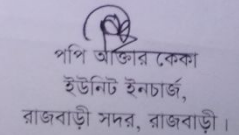 পপি আক্তার কেকা
ইউনিট ইনচার্জ,
রাজবাড়ী সদর, রাজবাড়ী।